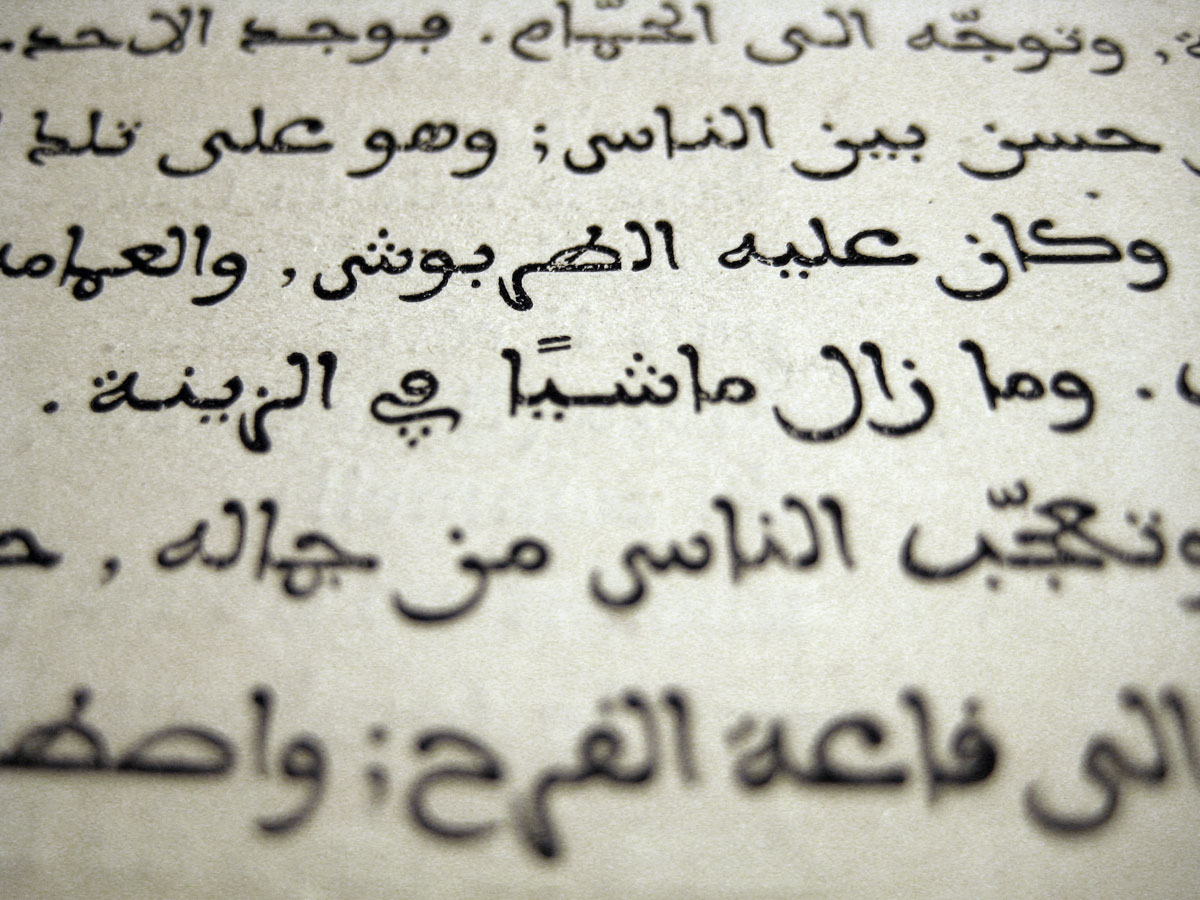 وتوجّه الى الحمّام. فوجد الاحد
حسن بين الناس; وهو على تلك
وكان عليه الطربوش, والعمامة
. وما زال ماشيًا في الزينة.
وتعجّب الناس من جماله,
الى قاعة الفرح;